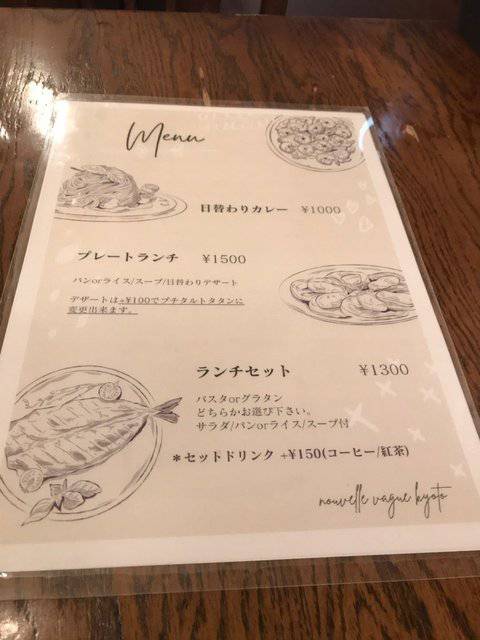 Menu
日替わりカレー ¥1000
プレートランチ ¥1500
パンorライス/スープ/日替わりデザート
デザートは+¥100でプチタルトタタンに
変更出来ます。
ランチセット ¥1300
パスタorグラタン
どちらかお選び下さい。
サラダ/パンorライス/スープ付
＊セットドリンク +¥150(コーヒー/紅茶)
nouvelle vague kyoto